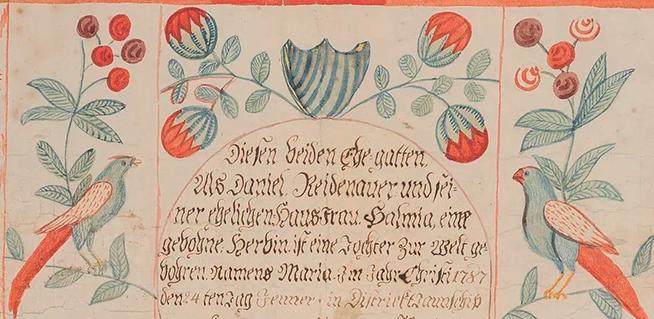 Diesen beiden Ehe-gatten,
Als Daniel Reidenauer und sei-
ner ehelichen Haus frau Halmia, eine
gebohne Herbin, ist eine Tochter Zur Welt ge-
bohren. namens Maria. Im Jahr Christi 1787
den 24 ten Tag Jenner. in Districkt Taunschip